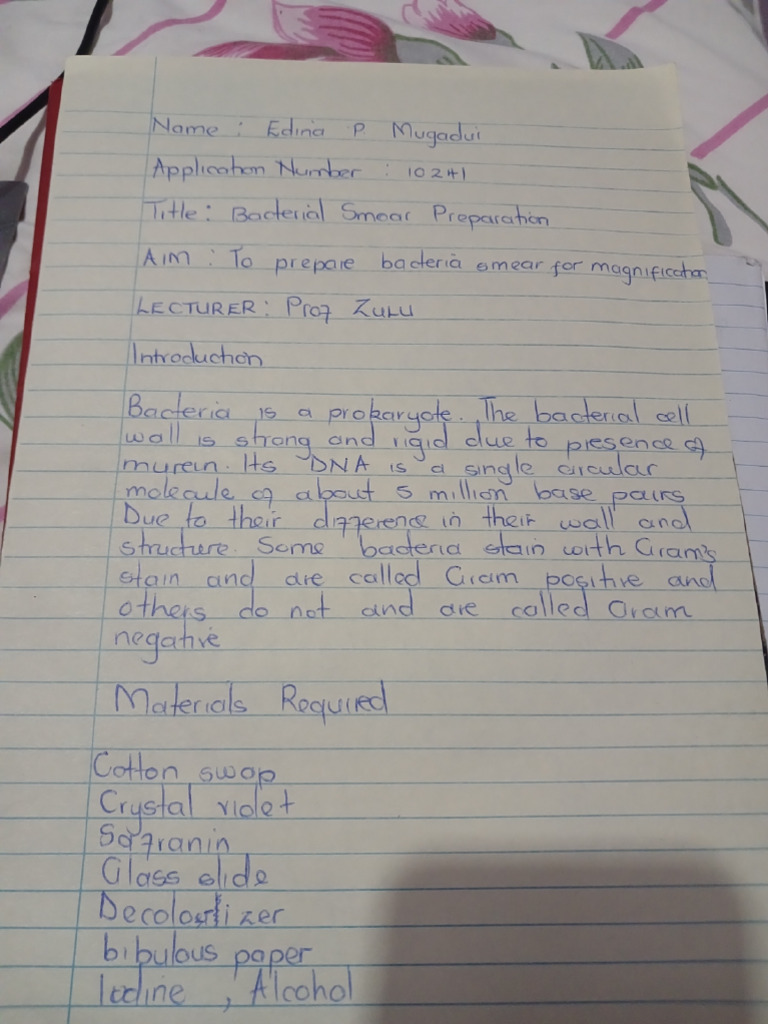 Name : Edina P Mugadui
Application Number : 10241
Title: Bacterial Smear Preparation
AIM : To prepare bacteria smear for magnification
LECTURER: Prof ZULU
Introduction
Bacteria is a prokaryote. The bacterial cell
wall is strong and rigid due to presence of
murein. Its DNA is a single circular
molecule of about 5 million base pairs
Due to their difference in their wall and
structure. Some bacteria stain with Gram's
stain and are called Gram positive and
others do not and are called Gram
negative
Materials Required
Cotton swap
Crystal violet
Safranin
Glass slide
Decolorizer
bibulous paper
Iodine , Alcohol